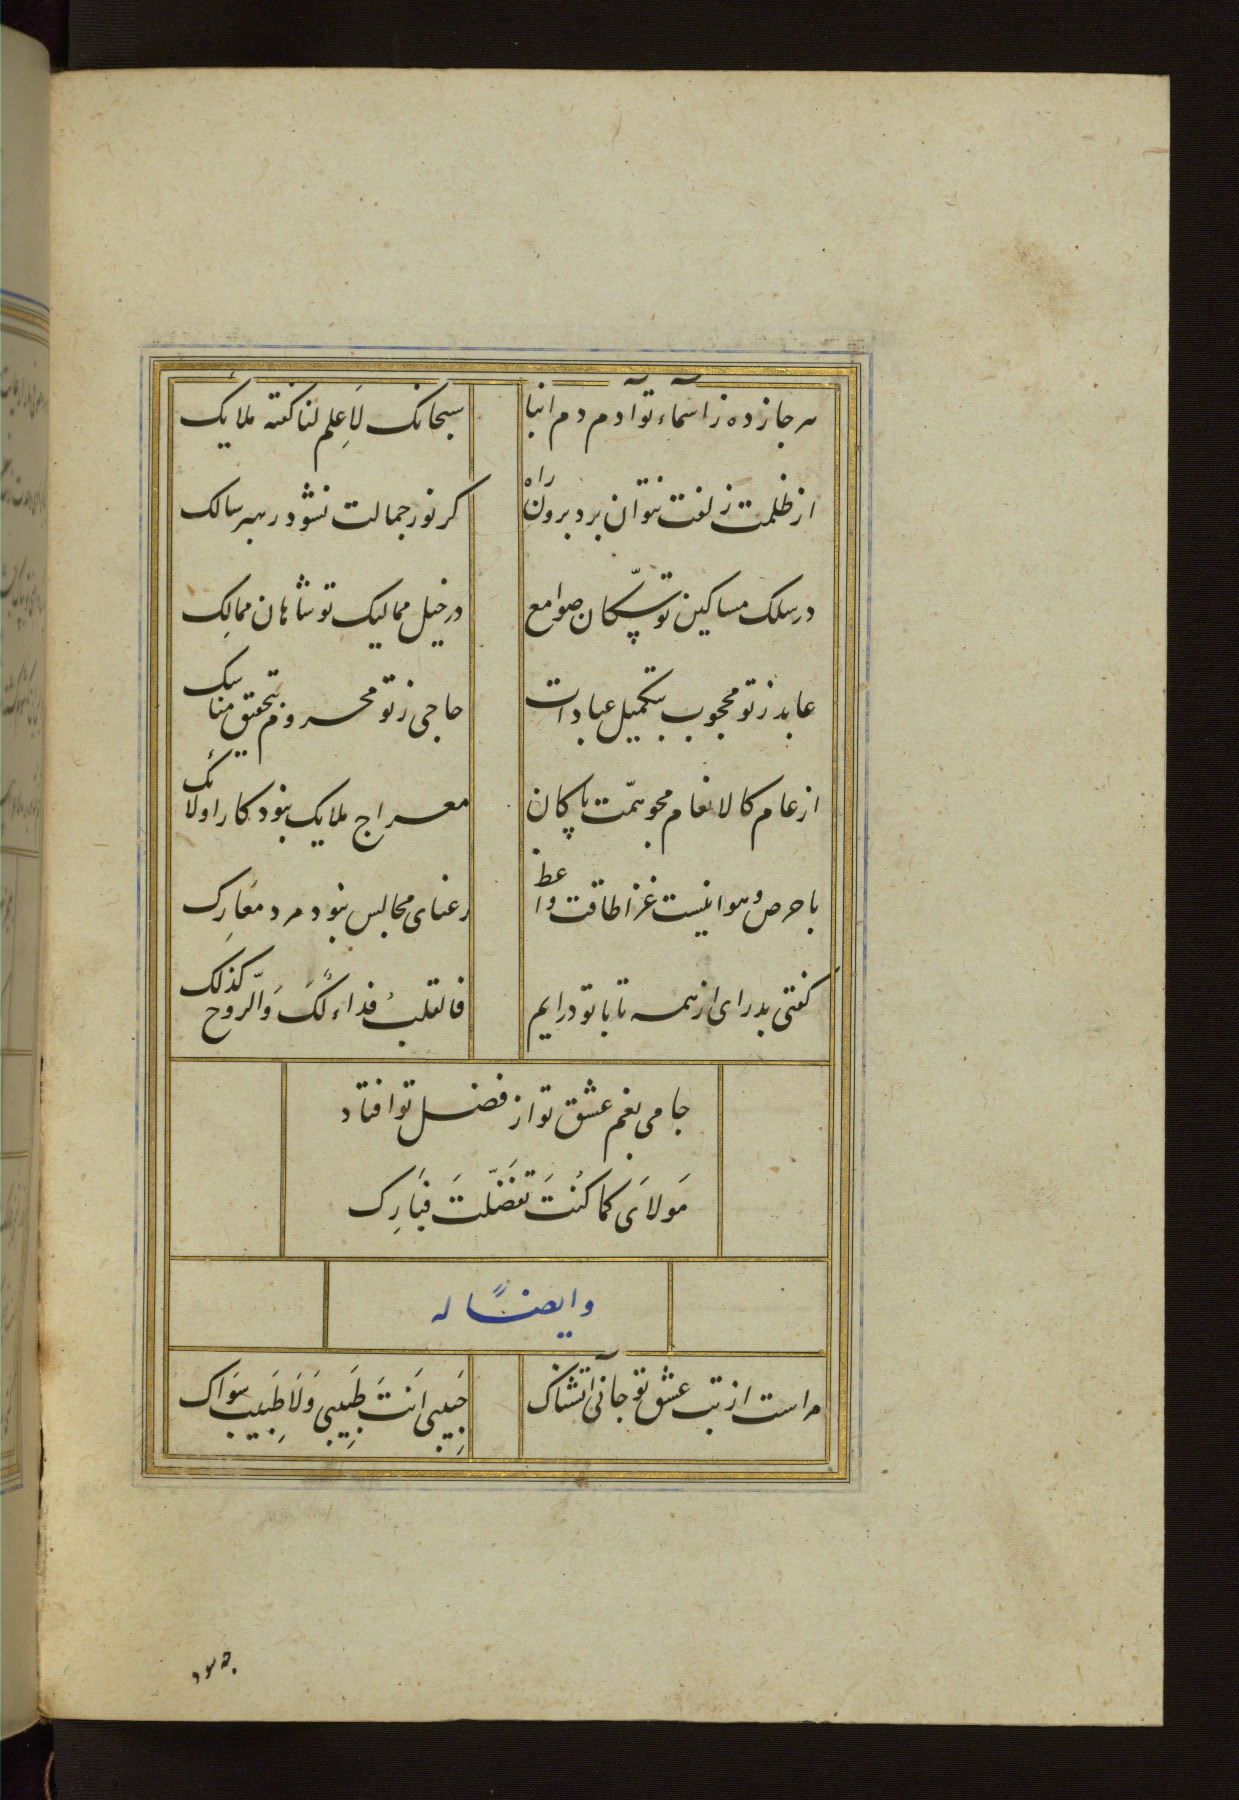 هر جا زده ز اسماء تو آدم دم انبا
سبحانک لا علم لنا گفته ملایک
از ظلمت زلفت نتوان برد برون راه
کر نور جمالت نشود رهبر سالک
در سلک مساکین تو سکّان صوامع
در خیل ممالیک تو شاهان ممالِک
عابد ز تو محجوب بتکمیل عبادات
حاجی ز تو محروم بتحقیق مناسک
از عام کالانعام مجو همّت پاکان
معراج ملایک نبود کار اولائک
با حرص و هوا نیست غزا طاقت واعظ
رعنای مجالس نبود مرد معَارِک
کفتی بدرای از همه تا با تو درایم
فالقلبُ فداءً لکَ وَالّروح کذلک
جامی بغم عشق تو از فضل تو افتاد
مَولاَی کما کُنتَ تفَضّلَتَ فبَارِک
و ایضاً له
مراست از تب عشق تو جانی آتشناک
حَبِیبی اَنتَ طَبِیبی وَلَا طَبِیبَ سَوَاک